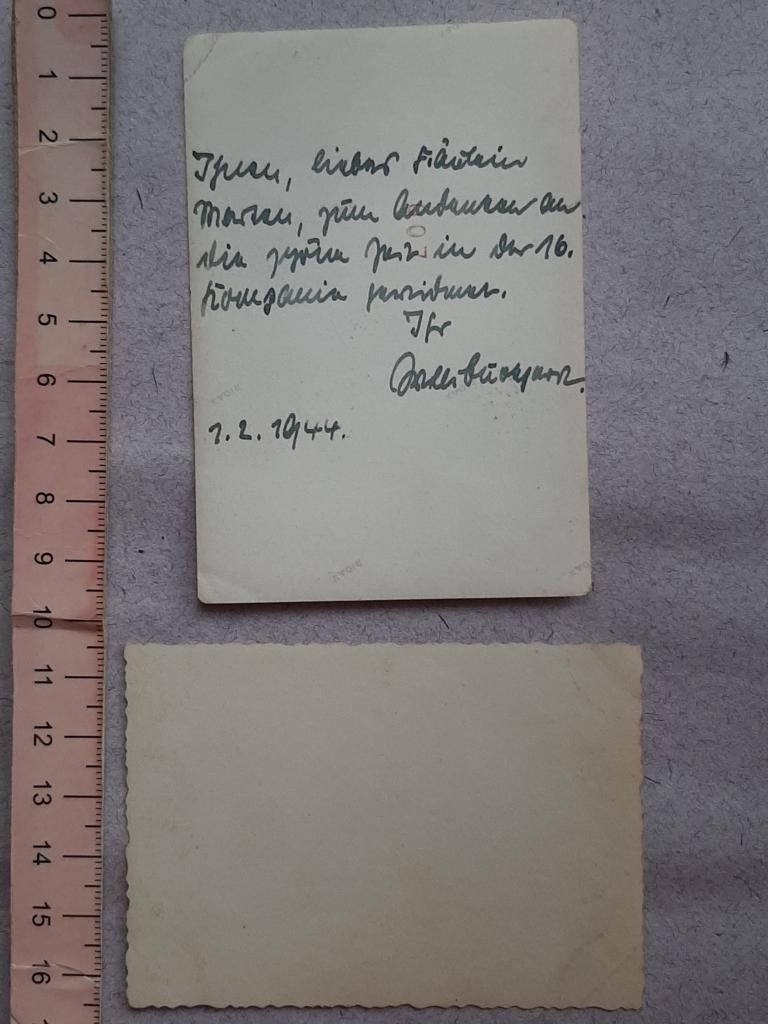 Ihnen, liebes Fräulein
Marten, zum Andenken an
die schöne Zeit in der 16.
Kompanie gewidmet.
Ihr
1.2.1944.
0
1
2
3
4
5
6
7
8
9
10
11
12
13
14
15
16